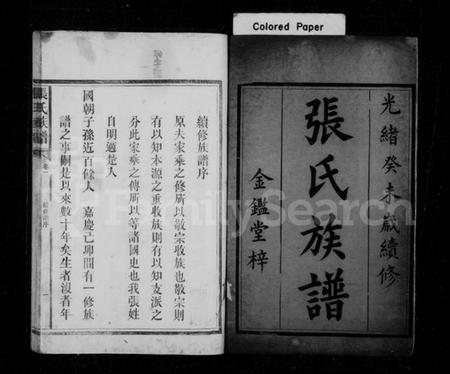 Colored Paper
光緒癸未歲續修
張氏族譜
金鑑堂梓
續修族譜序
原夫家乘之修所以敬宗收族也敬宗則
有以知本源之重收族則有以知支派之
分此家乘之傳所以等諸國史也我張姓
自明適楚人
國朝子孫近百餘人 嘉慶己卯間有一修族
譜之事嗣是以來數十年矣生者沒者年
張氏族譜
卷一
續修譜序
一
FamilySearch